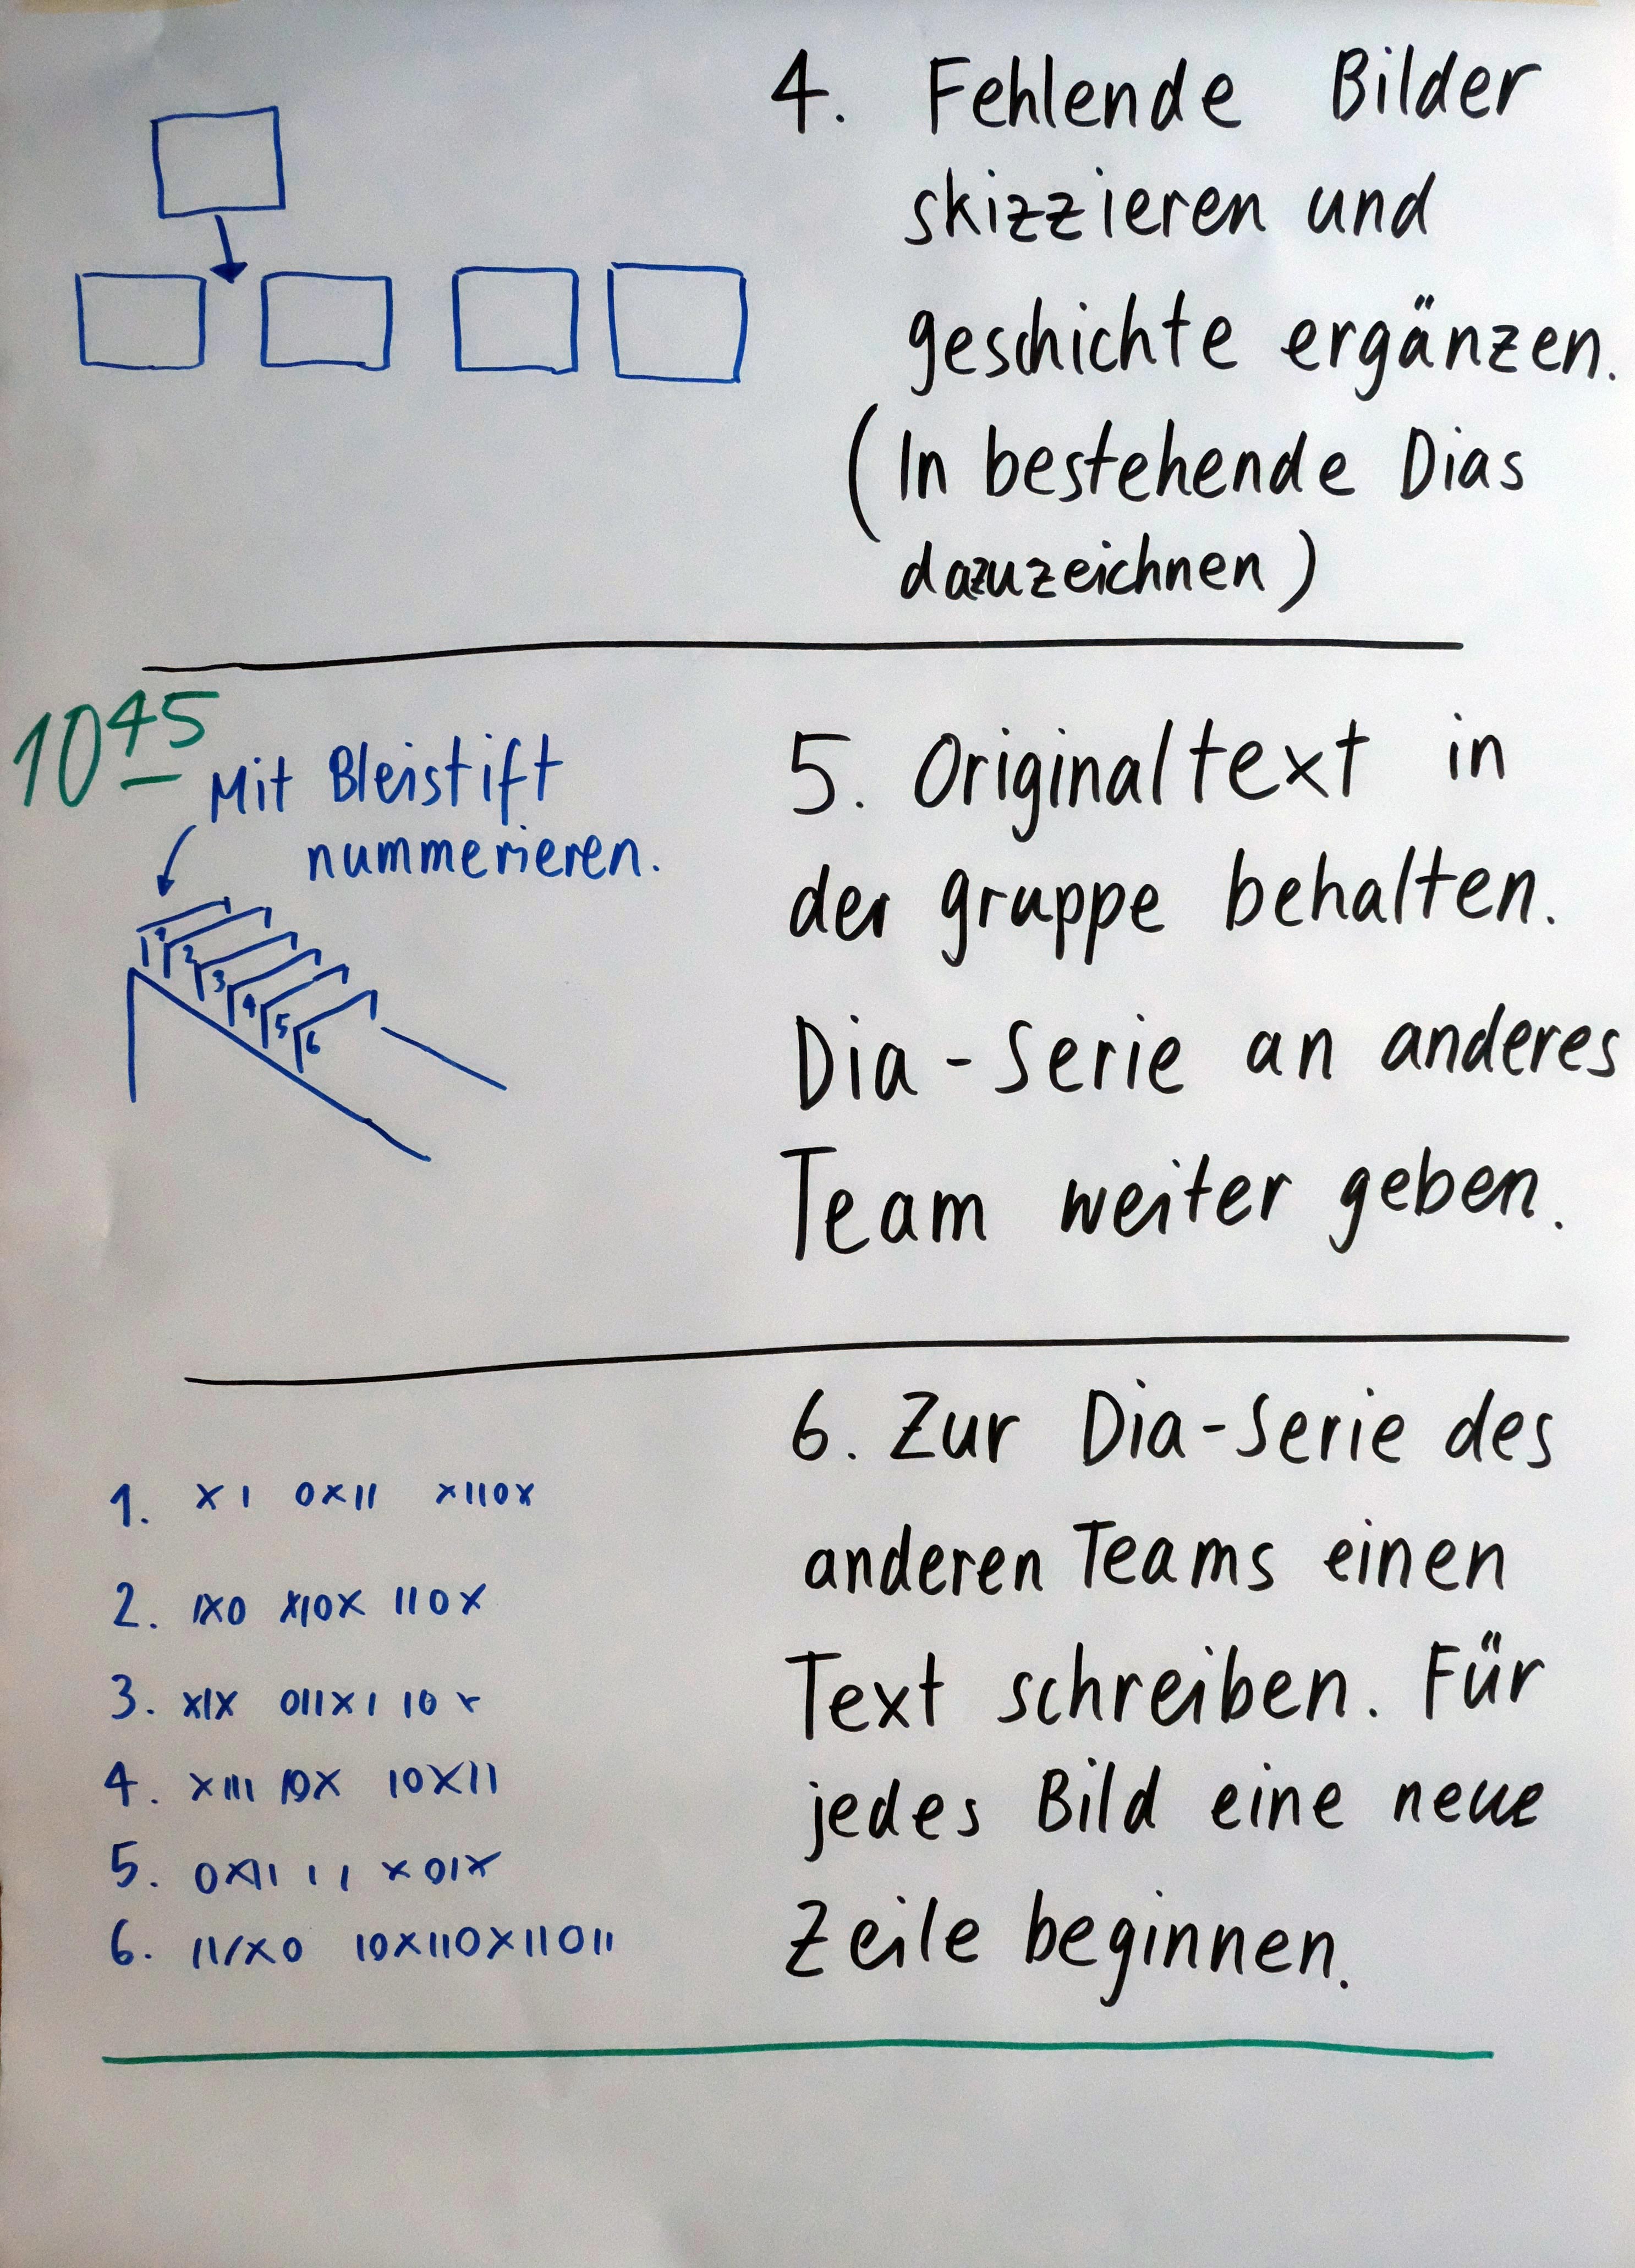 4. Fehlende Bilder
skizzieren und
geschichte ergänzen.
(In bestehende Dias
dazuzeichnen)
10 45
Mit Bleistift
nummerieren.
1 2 3 4 5 6
5. Originaltext in
der gruppe behalten.
Dia-Serie an anderes
Team weiter geben.
1. X I 0XII XII0X
2. IX0 XI0X II0X
3. XIX 0IIXI I0 X
4. XIII I0X I0XII
5. 0XII I I X0IX
6. II/X0 I0XII0XII0II
6. Zur Dia-Serie des
anderen Teams einen
Text schreiben. Für
jedes Bild eine neue
Zeile beginnen.